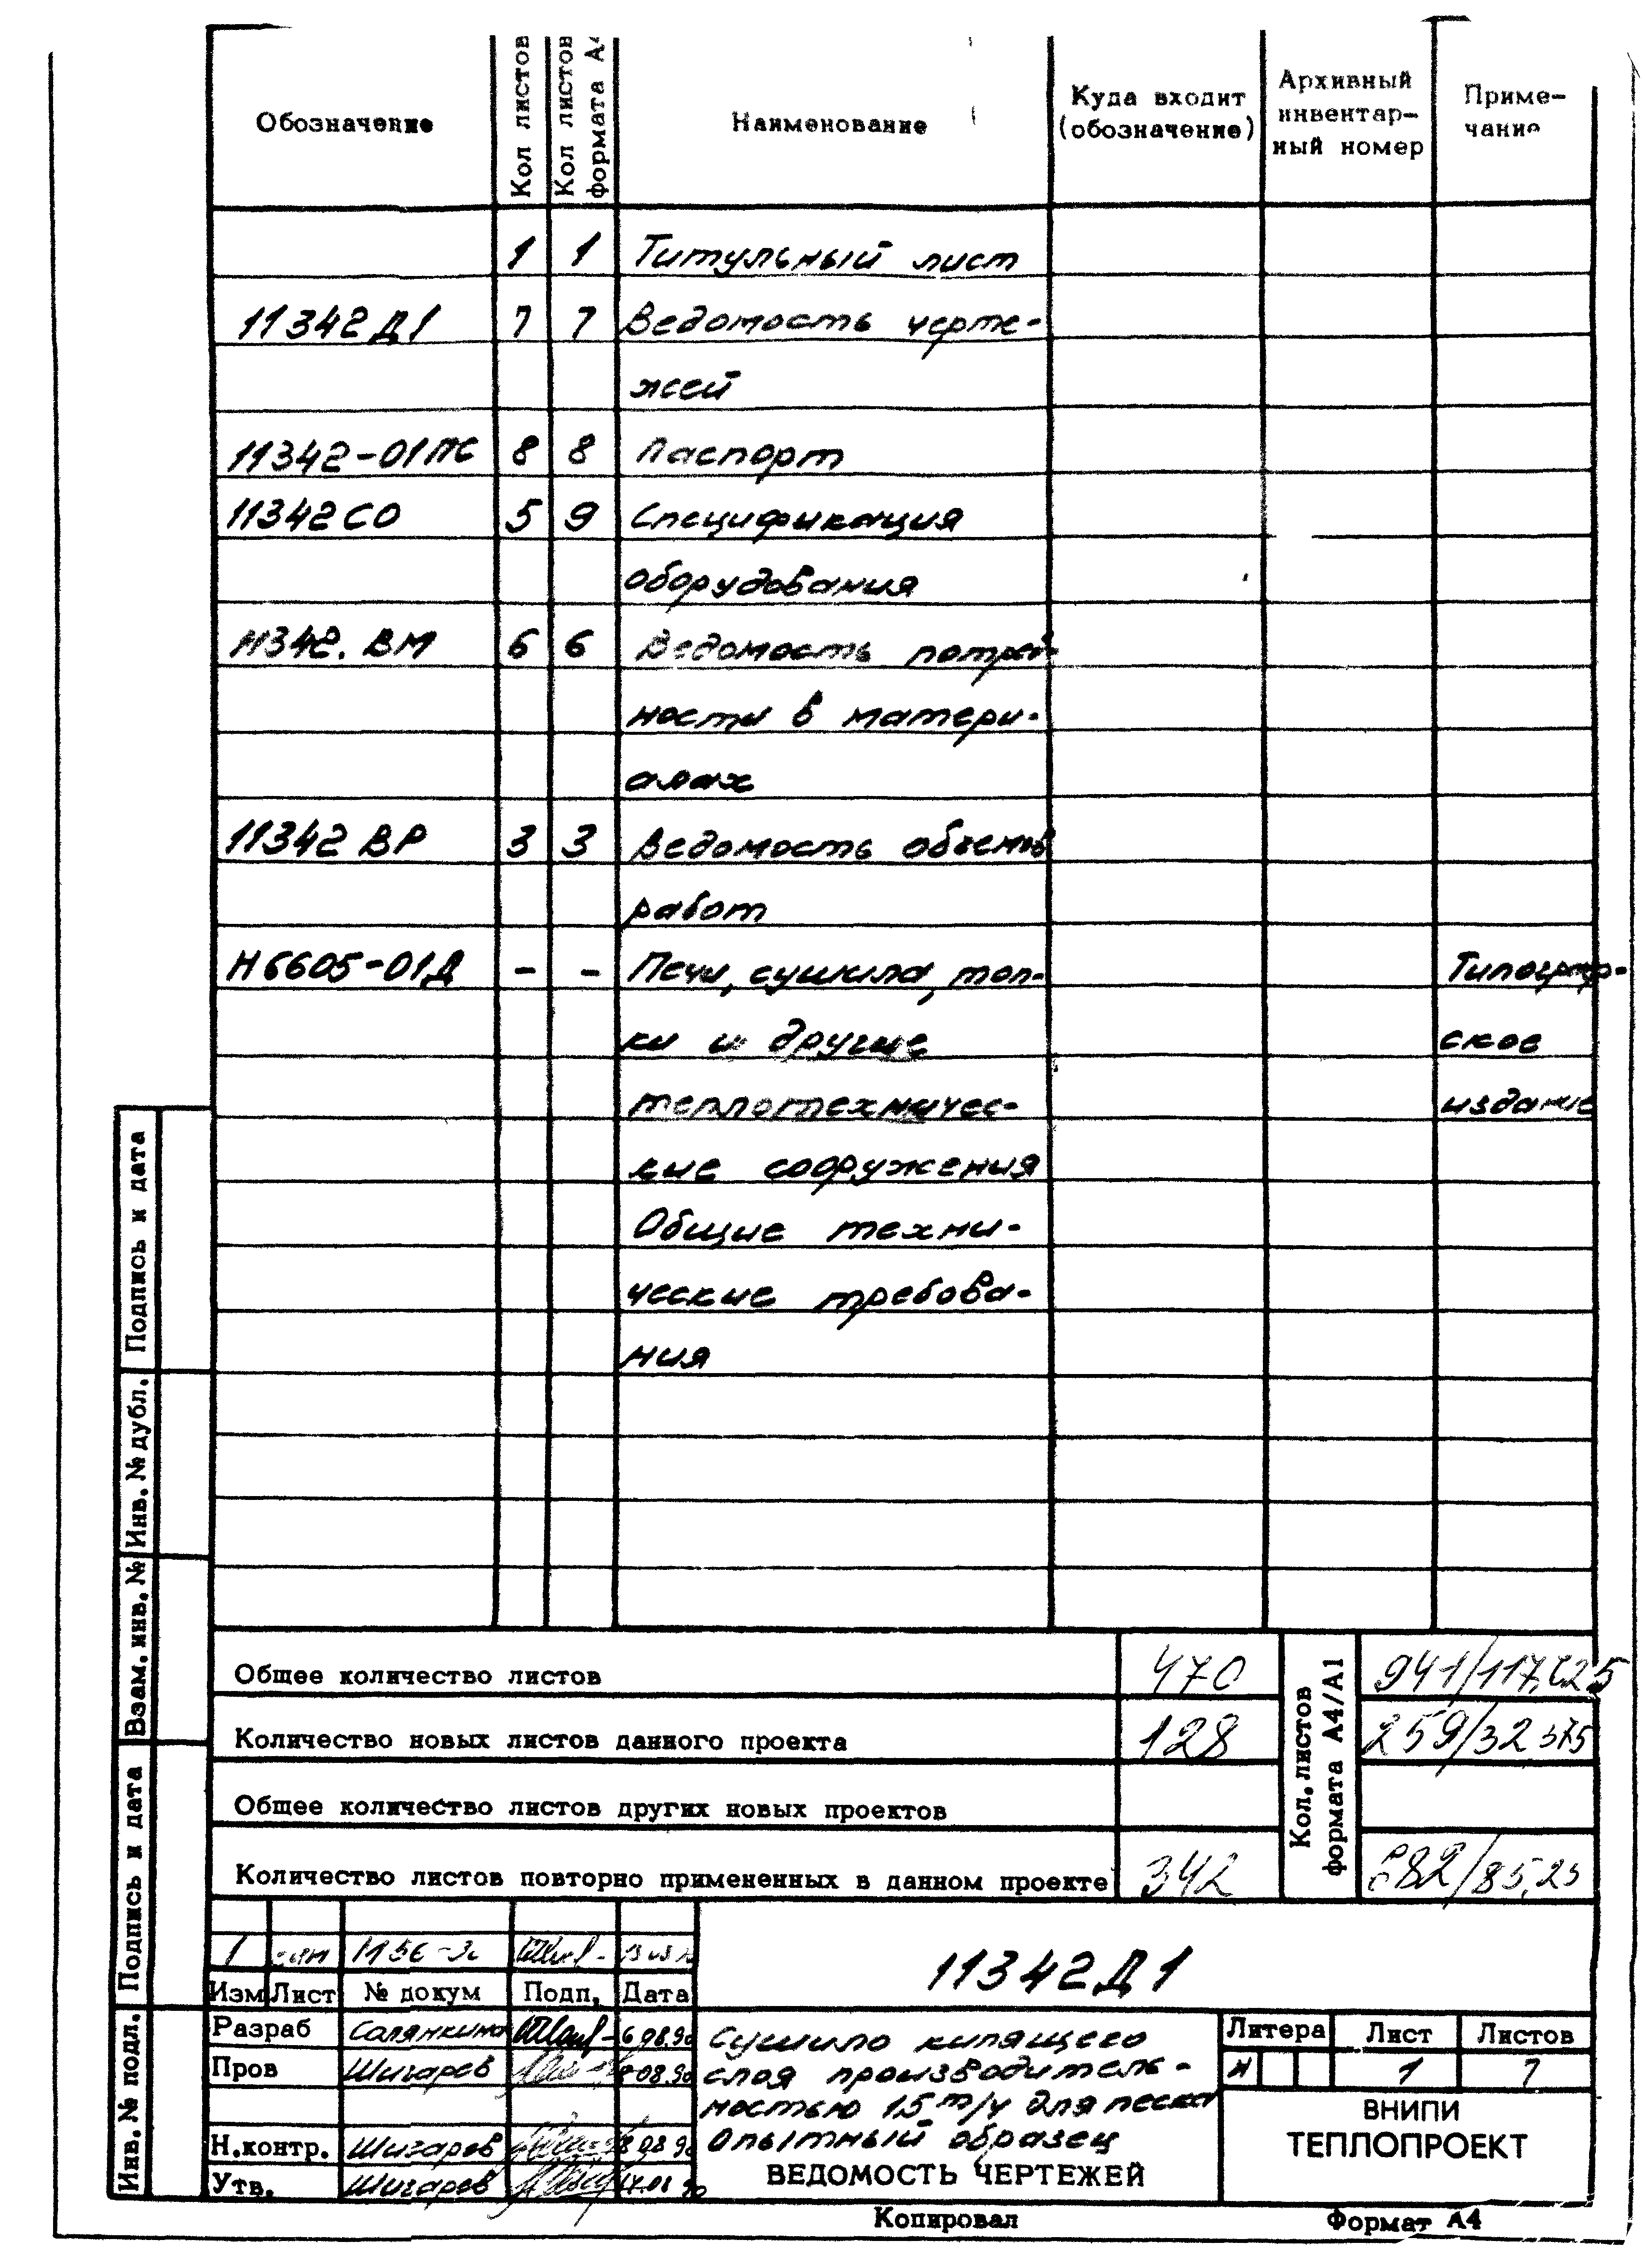 Обозначение
Кол листов
Кол листов
формата А4
Наименование
Куда входит
(обозначение)
Архивный
инвентар-
ный номер
Приме-
чание
1 1 Титульный лист
11342Д1 7 7 Ведомость черте-
жей
11342-01ПС 8 8 Паспорт
11342СО 5 9 Спецификация
оборудования
11342.ВМ 6 6 Ведомость потреб-
ности в матери-
алах
11342 ВР 3 3 Ведомость объемов
работ
Н6605-01Д - - Печи, сушила, топ- Типограф-
ки и другие ское
теплотехничес- издание
кие сооружения
Общие техни-
ческие требова-
ния
Общее количество листов 470 941/117,625
Количество новых листов данного проекта 128 259/32 375
Общее количество листов других новых проектов
Количество листов повторно примененных в данном проекте 342 682/85,25
Кол. листов
формата А4/А1
1
Изм Лист № докум Подп. Дата
11342Д1
Разраб Салянкина 6.08.90
Пров Шигарев 8.08.90
Н.контр. Шигарев 8 08 90
Утв. Шигарев
Сушило кипящего
слоя производитель-
ностью 15 т/ч для песка
Опытный образец
ВЕДОМОСТЬ ЧЕРТЕЖЕЙ
Литера Лист Листов
И 1 7
ВНИПИ
ТЕПЛОПРОЕКТ
Копировал Формат А4
Подпись и дата
Инв. № дубл.
Взам. инв. №
Подпись и дата
Инв. № подл.